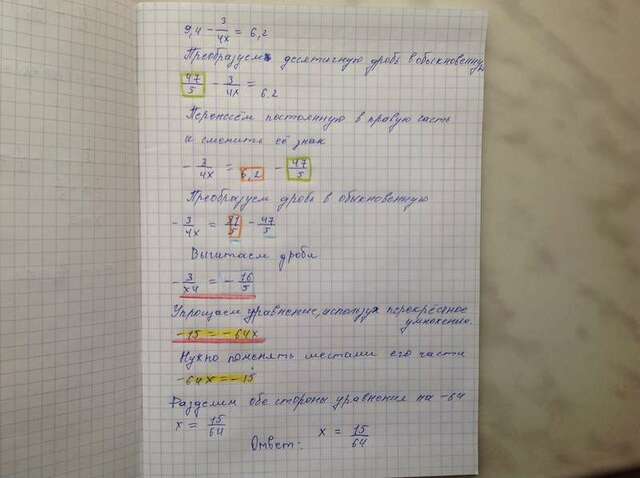 9,4 - 3/4x = 6,2
Преобразуем десятичную дробь в обыкновенную
47/5 - 3/4x = 6,2
Перенесём постоянную в правую часть
и сменить её знак
- 3/4x = 6,2 - 47/5
Преобразуем дробь в обыкновенную
- 3/4x = 31/5 - 47/5
Вычитаем дроби
- 3/x4 = - 16/5
Упрощаем уравнение, используя перекрёстное
умножение.
-15 = -64x
Нужно поменять местами его части
-64x = -15
Разделим обе стороны уравнения на -64
x = 15/64
Ответ: x = 15/64